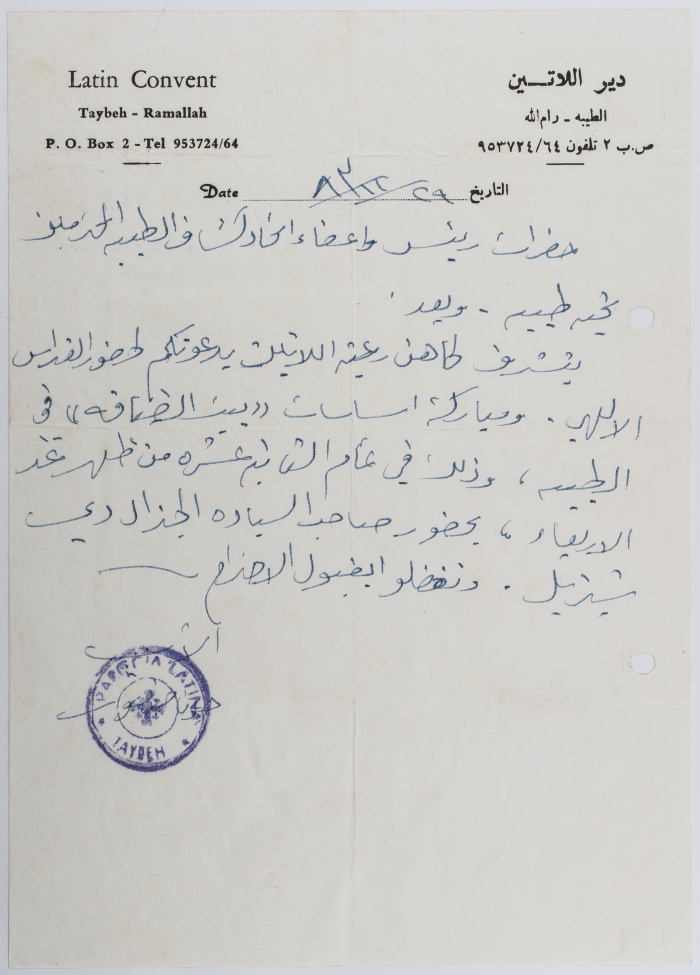 Latin Convent
Taybeh - Ramallah
P. O. Box 2 - Tel 953724/64
دير اللاتــين
الطيبه - رام الله
ص.ب ٢ تلفون ٩٥٣٧٢٤/٦٤
Date ٢٩/ /٨٣ التاريخ
حضرات رئيس واعضاء في الطيبه المحترمين
تحيه طيبه - وبعد .
يتشرف كاهن رعية اللاتين بدعوتكم لحضور القداس
الالهي . ومباركة اساسات «بيت الضيافه» في
الطيبه ، وذلك في تمام الثانيه عشره من ظهر غد
الاربعاء ، بحضور صاحب السياده الجنرال دي
. وتفضلوا بقبول الاحترام
الأب
PARROCIA LATINA
TAYBEH